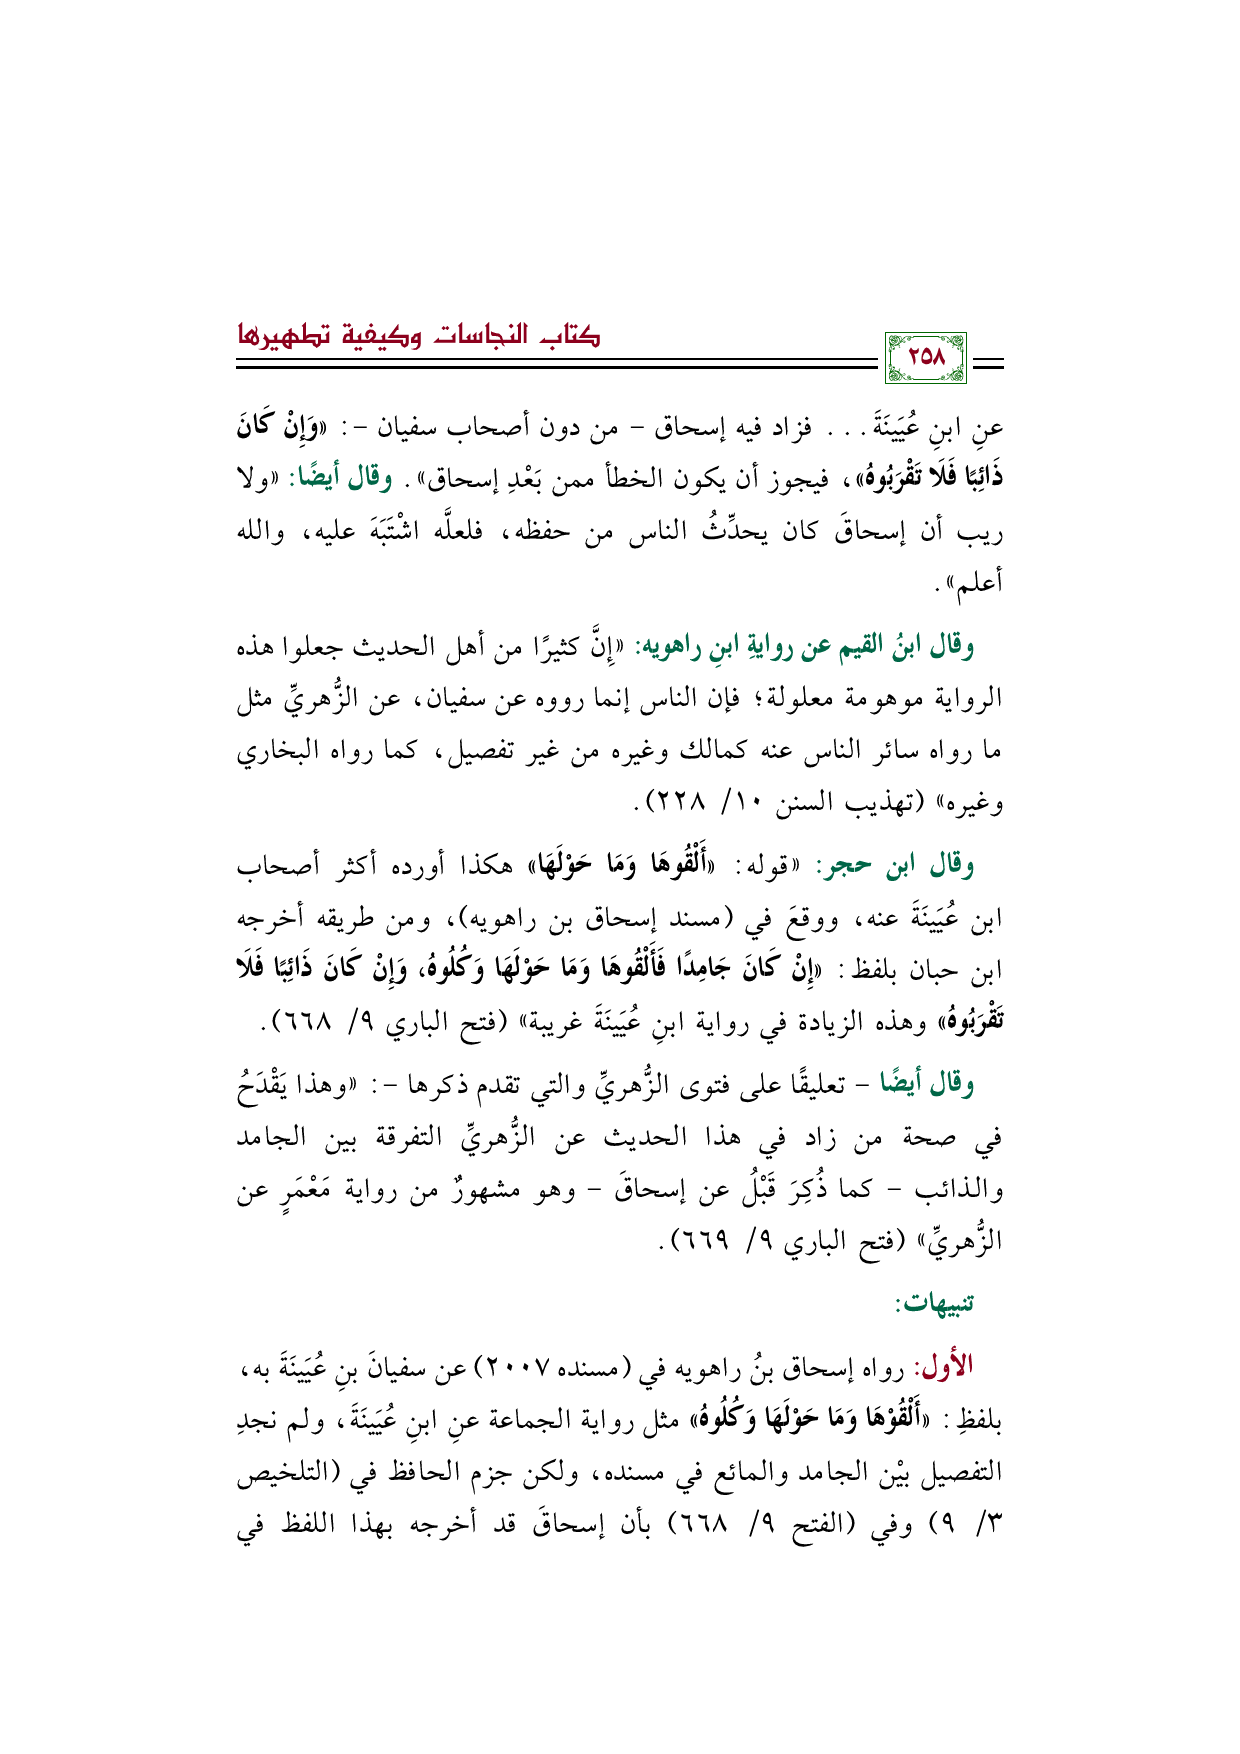 كتاب النجاسات وكيفية تطهيرها
٢٥٨
عنِ ابنِ عُيَينَةَ... فزاد فيه إسحاق - من دون أصحاب سفيان -: «وَإِنْ كَانَ
ذَائِبًا فَلَا تَقْرَبُوهُ»، فيجوز أن يكون الخطأ ممن بَعْدِ إسحاق». وقال أيضًا: «ولا
ريب أن إسحاقَ كان يحدِّثُ الناس من حفظه، فلعلَّه اشْتَبَهَ عليه، والله
أعلم».
وقال ابنُ القيم عن روايةِ ابنِ راهويه: «إِنَّ كثيرًا من أهل الحديث جعلوا هذه
الرواية موهومة معلولة؛ فإن الناس إنما رووه عن سفيان، عن الزُّهريِّ مثل
ما رواه سائر الناس عنه كمالك وغيره من غير تفصيل، كما رواه البخاري
وغيره» (تهذيب السنن ١٠/ ٢٢٨).
وقال ابن حجر: «قوله: «أَلْقُوهَا وَمَا حَوْلَهَا» هكذا أورده أكثر أصحاب
ابن عُيَينَةَ عنه، ووقعَ في (مسند إسحاق بن راهويه)، ومن طريقه أخرجه
ابن حبان بلفظ: «إِنْ كَانَ جَامِدًا فَأَلْقُوهَا وَمَا حَوْلَهَا وَكُلُوهُ، وَإِنْ كَانَ ذَائِبًا فَلَا
تَقْرَبُوهُ» وهذه الزيادة في رواية ابنِ عُيَينَةَ غريبة» (فتح الباري ٩/ ٦٦٨).
وقال أيضًا - تعليقًا على فتوى الزُّهريِّ والتي تقدم ذكرها -: «وهذا يَقْدَحُ
في صحة من زاد في هذا الحديث عن الزُّهريِّ التفرقة بين الجامد
والذائب - كما ذُكِرَ قَبْلُ عن إسحاقَ - وهو مشهورٌ من رواية مَعْمَرٍ عن
الزُّهريِّ» (فتح الباري ٩/ ٦٦٩).
تنبيهات:
الأول: رواه إسحاق بنُ راهويه في (مسنده ٢٠٠٧) عن سفيانَ بنِ عُيَينَةَ به،
بلفظِ: «أَلْقُوْهَا وَمَا حَوْلَهَا وَكُلُوهُ» مثل رواية الجماعة عنِ ابنِ عُيَينَةَ، ولم نجدِ
التفصيل بيْن الجامد والمائع في مسنده، ولكن جزم الحافظ في (التلخيص
٣/ ٩) وفي (الفتح ٩/ ٦٦٨) بأن إسحاقَ قد أخرجه بهذا اللفظ في